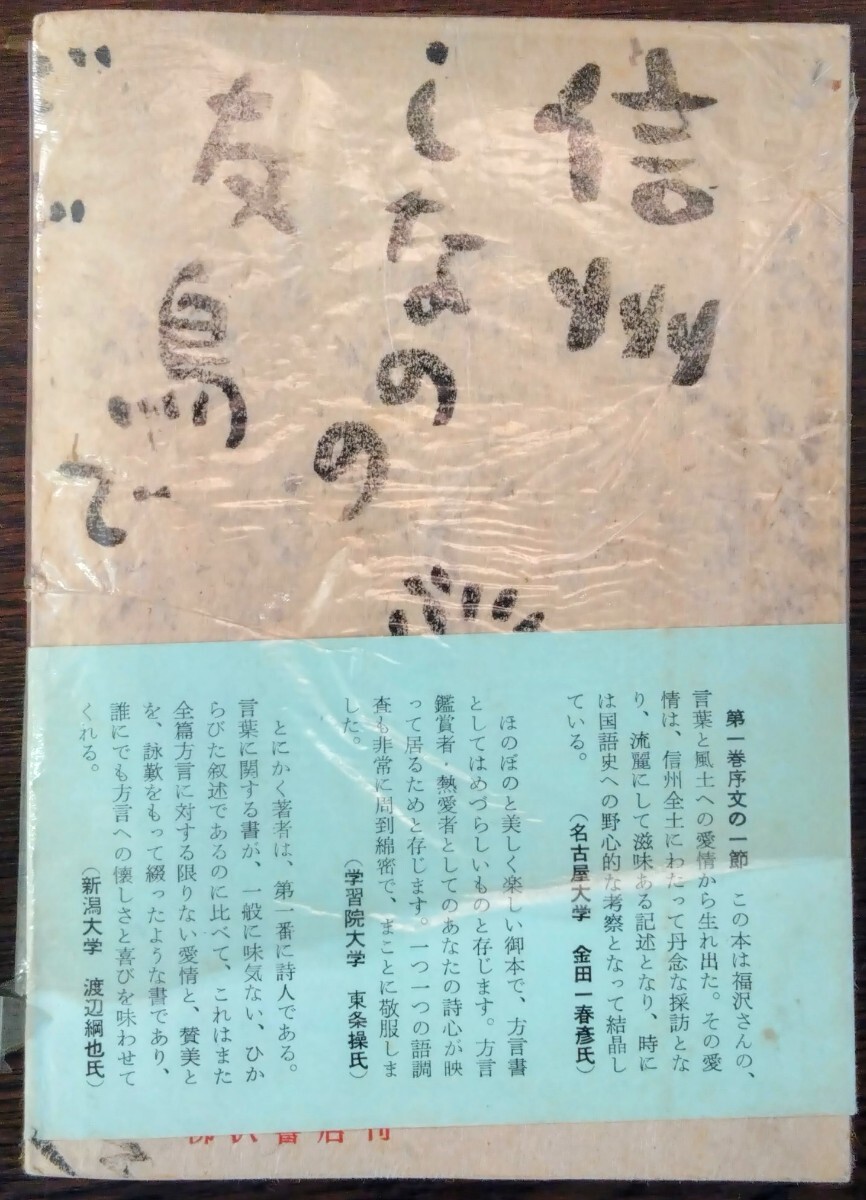 信州
しなの
の
友鳥で
第一巻序文の一節　この本は福沢さんの、
言葉と風土への愛情から生れ出た。その愛
情は、信州全土にわたって丹念な採訪とな
り、流麗にして滋味ある記述となり、時に
は国語史への野心的な考察となって結晶し
ている。
（名古屋大学　金田一春彦氏）
ほのぼのと美しく楽しい御本で、方言書
としてはめづらしいものと存じます。方言
鑑賞者・熱愛者としてのあなたの詩心が映
って居るためと存じます。一つ一つの語調
査も非常に周到綿密で、まことに敬服しま
した。
（学習院大学　東条操氏）
とにかく著者は、第一番に詩人である。
言葉に関する書が、一般に味気ない、ひか
らびた叙述であるのに比べて、これはまた
全篇方言に対する限りない愛情と、賛美と
を、詠歎をもって綴ったような書であり、
誰にでも方言への懐しさと喜びを味わせて
くれる。
（新潟大学　渡辺綱也氏）